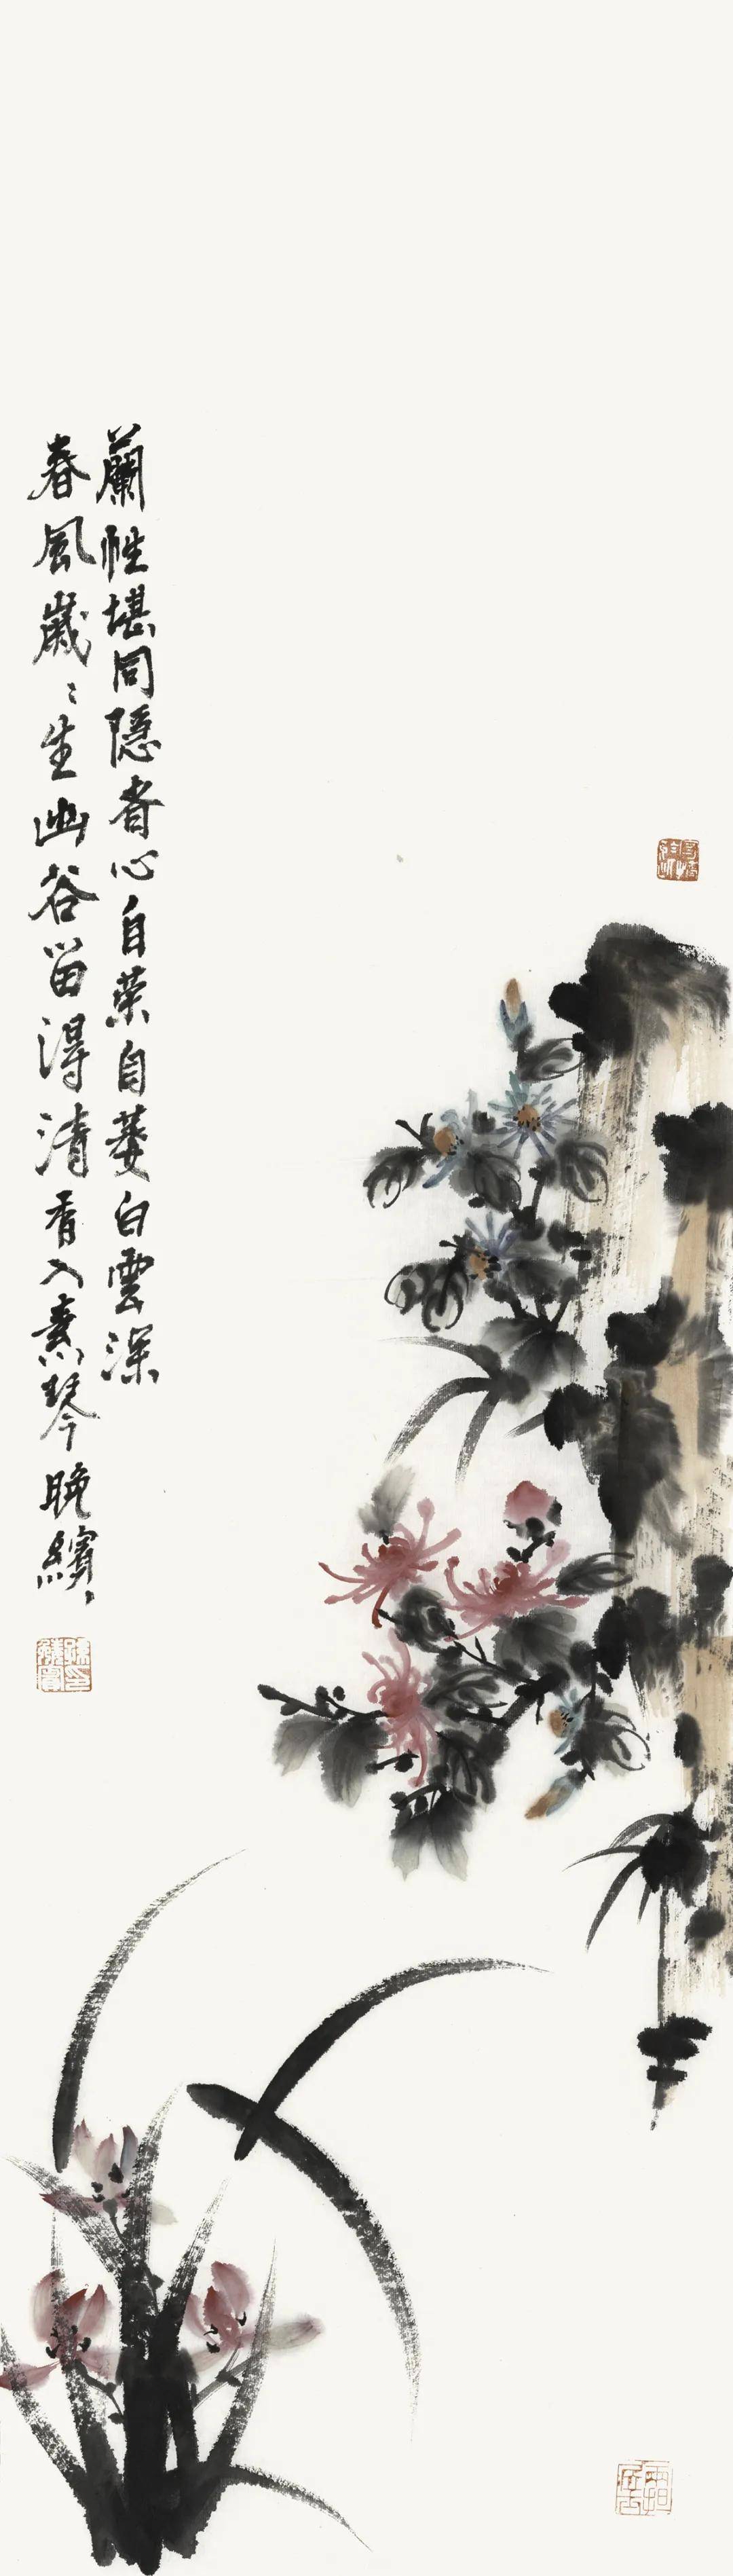 蘭性堪同隱者心自榮自萎白雲深
春風歲〻生幽谷留得清香入素琴晚繽